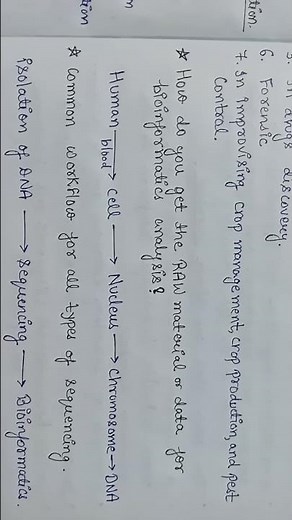 5. In drugs discovery.
6. Forensic
7. In improvising crop management, crop production, and pest
control.
★ How do you get the RAW material or data for
bioinformatics analysis?
Human blood → cell → Nucleus → chromosome → DNA
★ common workflow for all types of sequencing.
isolation of DNA → sequencing → Bioinformatics.